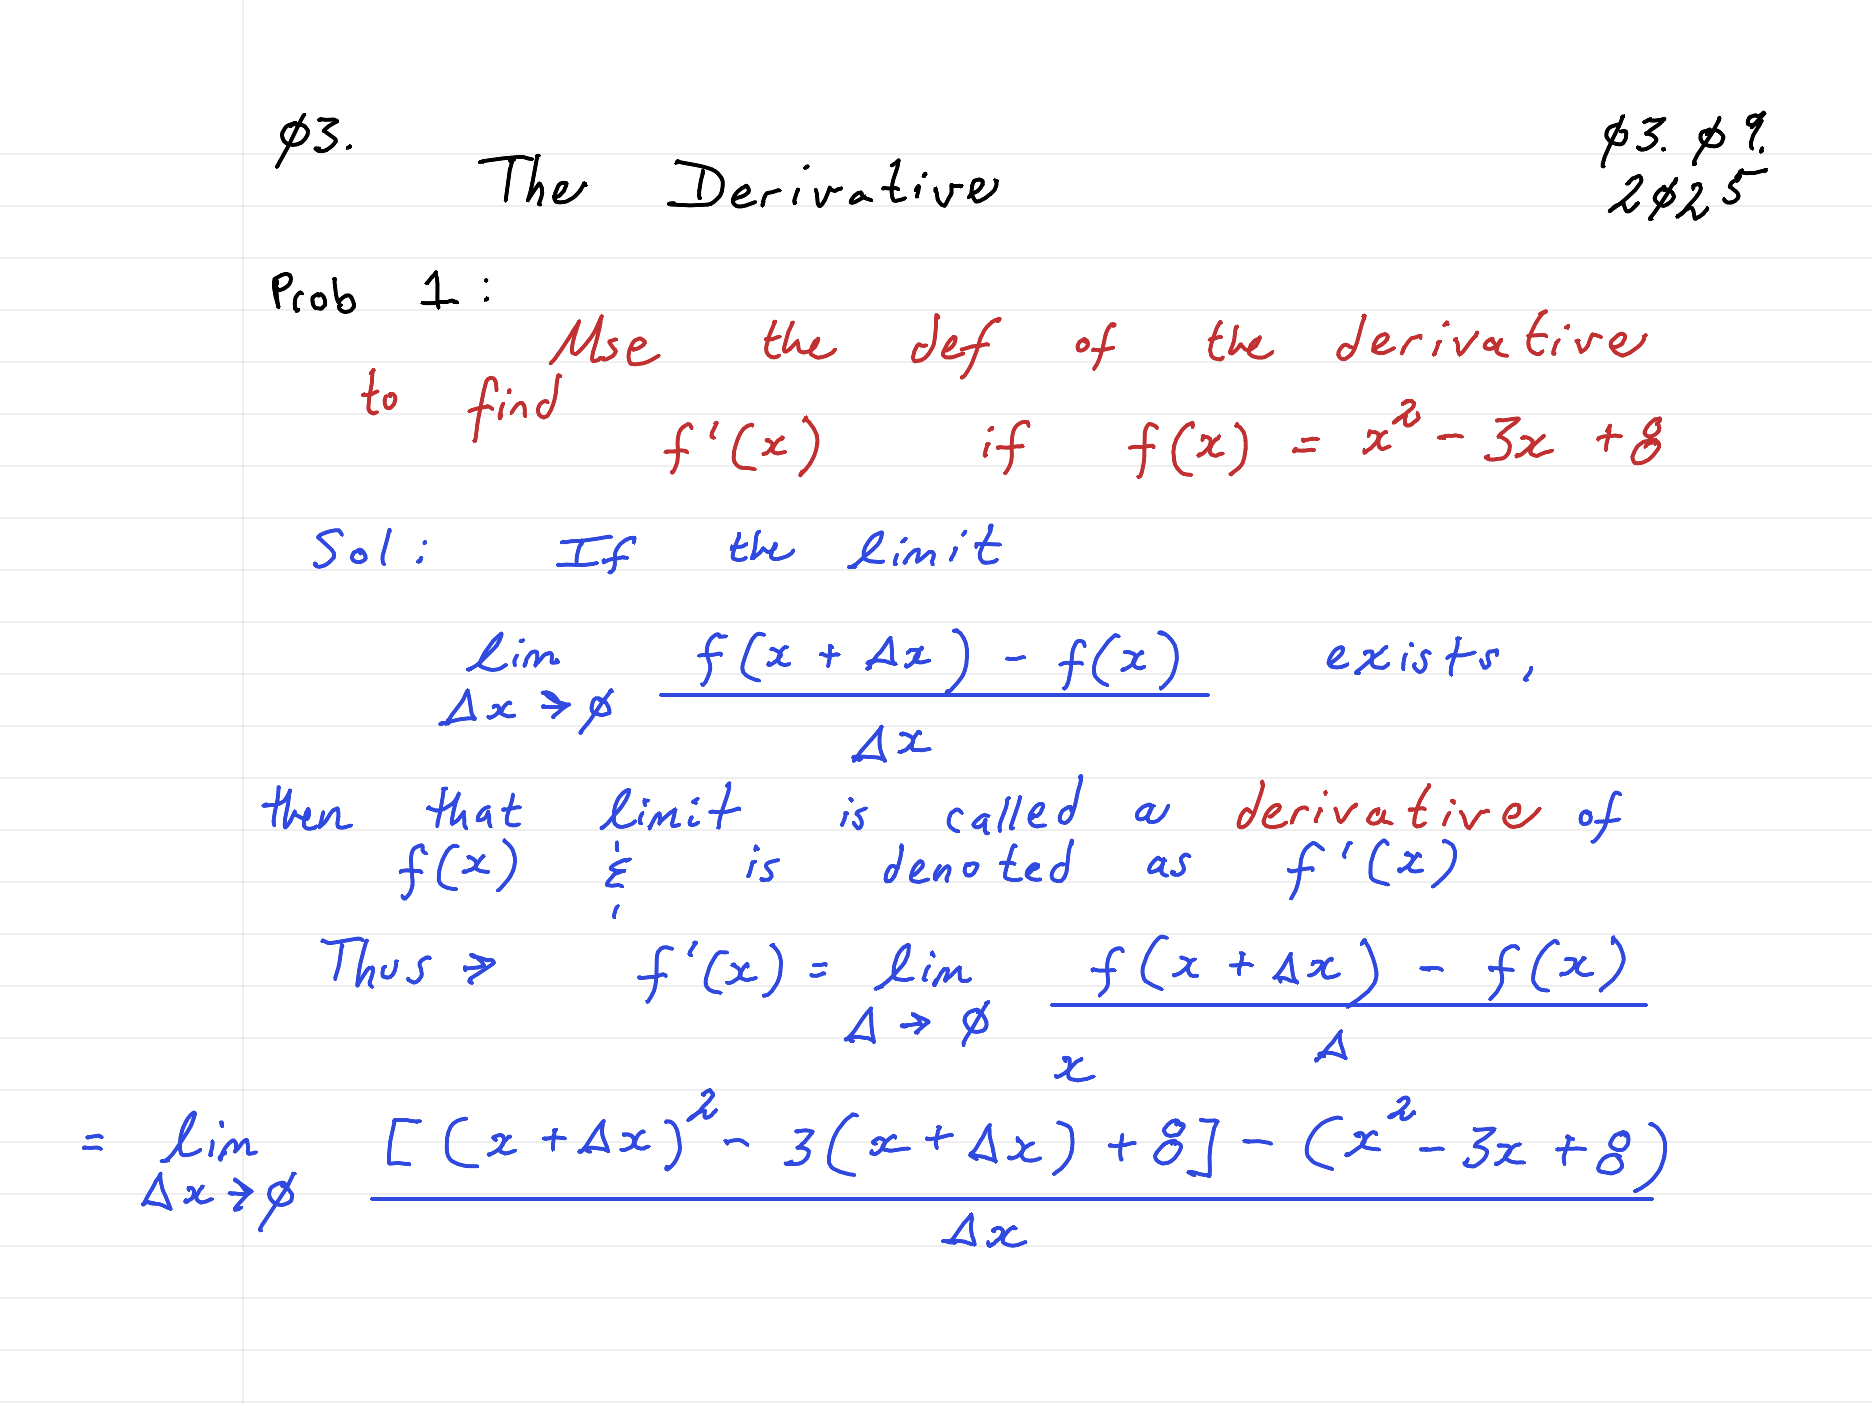 Ø3.
Ø3. Ø9.
The Derivative
2Ø25
Prob 1:
Use the def of the derivative
to find
f'(x) if f(x) = x² - 3x + 8
Sol: If the limit
lim f(x + Δx) - f(x) exists,
Δx → Ø
Δx
then that limit is called a derivative of
f(x) & is denoted as f'(x)
Thus → f'(x) = lim f(x + Δx) - f(x)
Δ → Ø Δ
x
= lim [(x + Δx)² - 3(x + Δx) + 8] - (x² - 3x + 8)
Δx → Ø
Δx